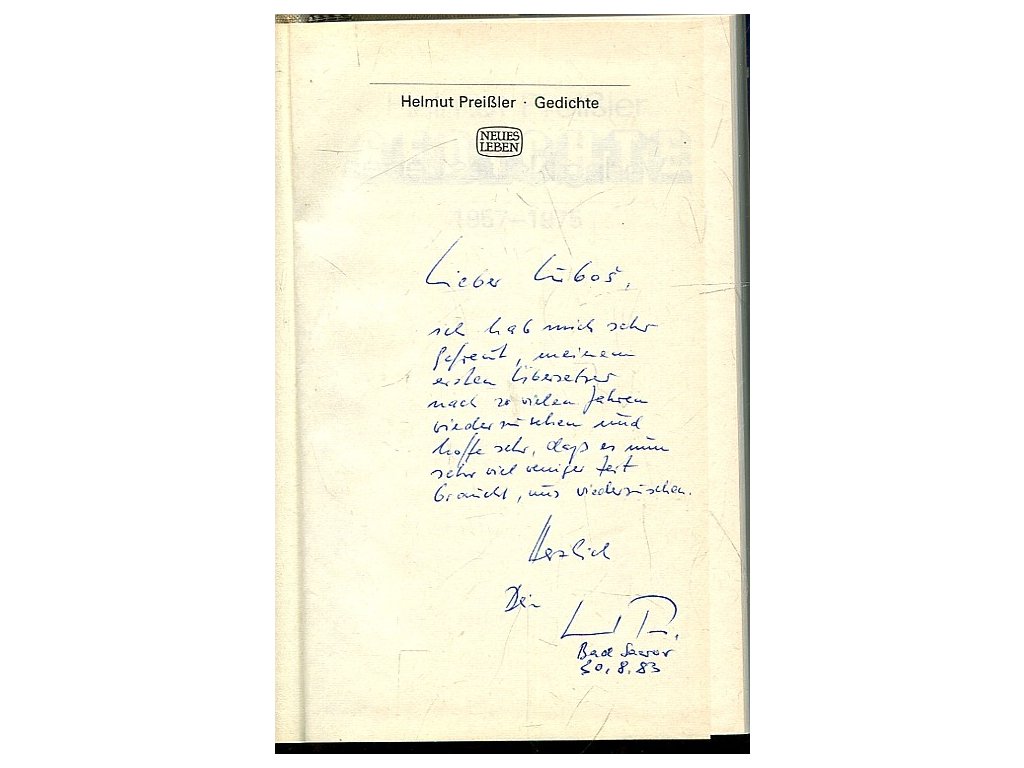 Helmut Preißler · Gedichte
NEUES
LEBEN
1957–1975
Lieber Luboš,
ich hab mich sehr
gefreut, meinem
ersten Übersetzer
nach so vielen Jahren
wiederzusehen und
hoffe sehr, daß es nun
sehr viel weniger Zeit
braucht, uns wiederzusehen.
Herzlich
Dein
Bad Saarow
30.8.83